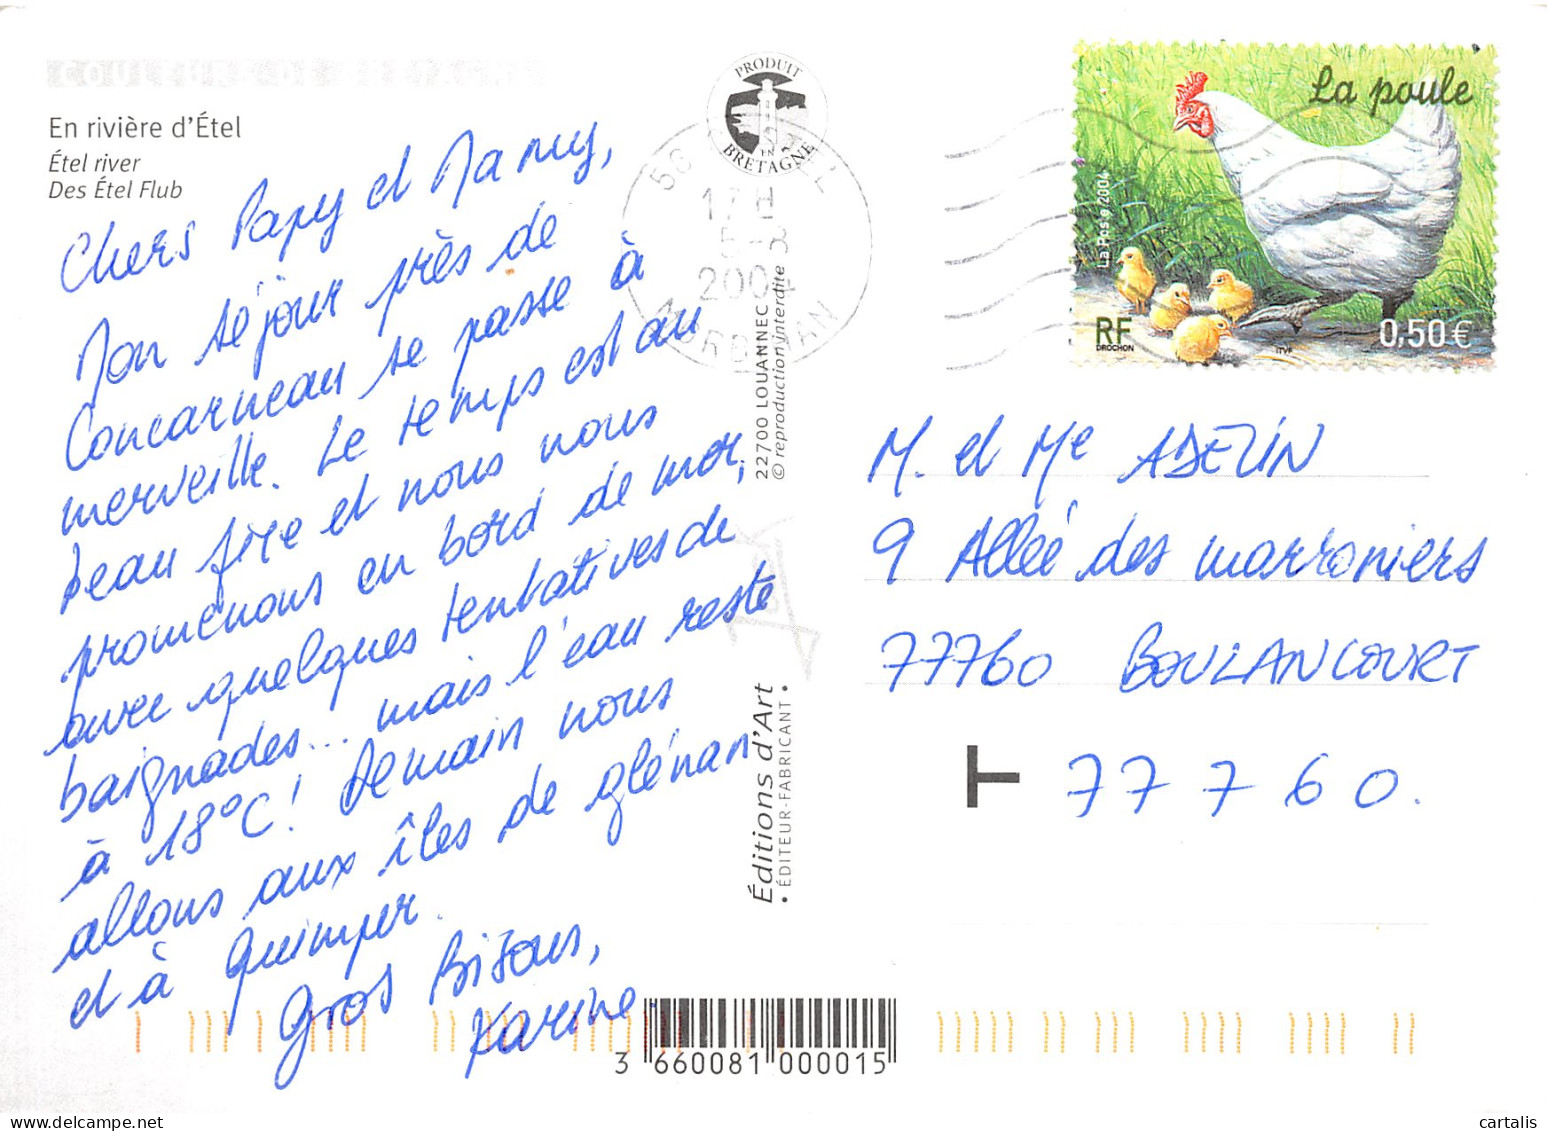 COULEURS DE BRETAGNE
En rivière d'Étel
Étel river
Des Étel Flub
Chers Papy et Mamy,
Mon séjour près de
Concarneau se passe à
merveille. Le temps est au
beau fixe et nous nous
promenons en bord de mer,
avec quelques tentatives de
baignades... mais l'eau reste
à 18°C! Demain nous
allons aux îles de glénan
et à Quimper.
Gros Bisous,
Karine.
PRODUIT
EN
BRETAGNE
56 ETEL
17H
5-
2004
MORBIHAN
22700 LOUANNEC
© reproduction interdite
Éditions d'Art
• ÉDITEUR-FABRICANT •
La poule
La Poste 2004
RF
DROCHON
ITVF
0,50€
M. et Me ADELIN
9 Allée des marroniers
77760 BOULANCOURT
T 77760.
3 660081 000015
cartalis